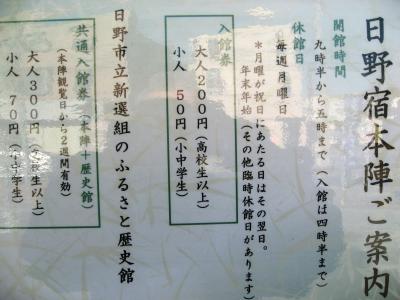 日野宿本陣ご案内
開館時間
九時半から五時まで(入館は四時半まで)
休館日
毎週月曜日
＊月曜が祝日にあたる日はその翌日。
年末年始(その他臨時休館日があります)
入館券
大人200円(高校生以上)
小人 50円(小中学生)
日野市立新選組のふるさと歴史館
共通入館券(本陣+歴史館)
(本陣観覧日から2週間有効)
大人300円(高校生以上)
小人 70円(小中学生)